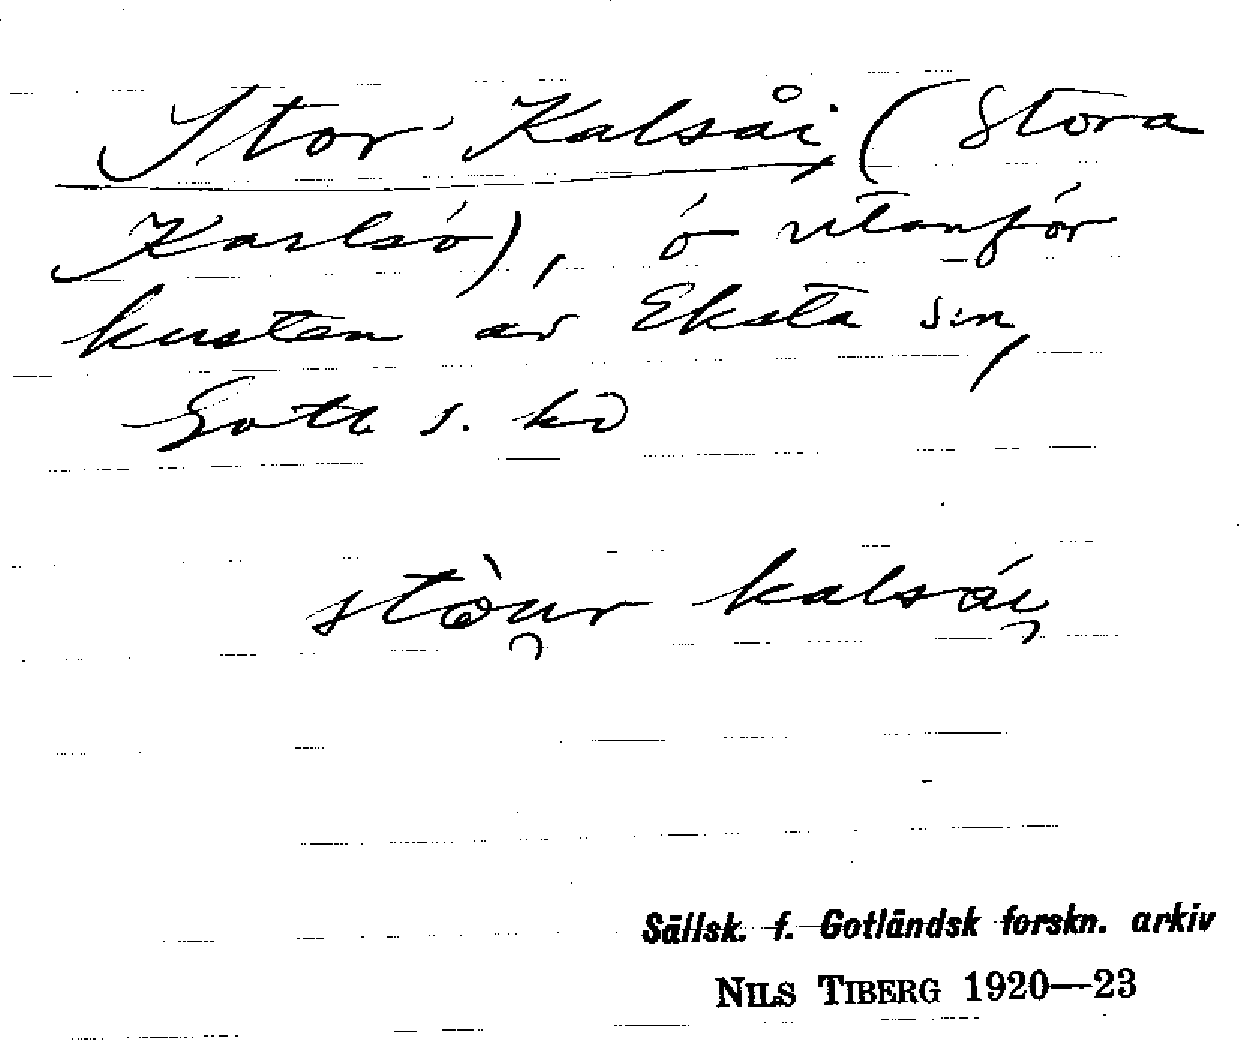 Stor Kalsåi, (Stora
Karlsö), ö utanför
kusten av Eksta sn,
Gotl s. hd
stòu̯r kalsái̯
Sällsk. f. Gotländsk forskn. arkiv
NILS TIBERG 1920—23